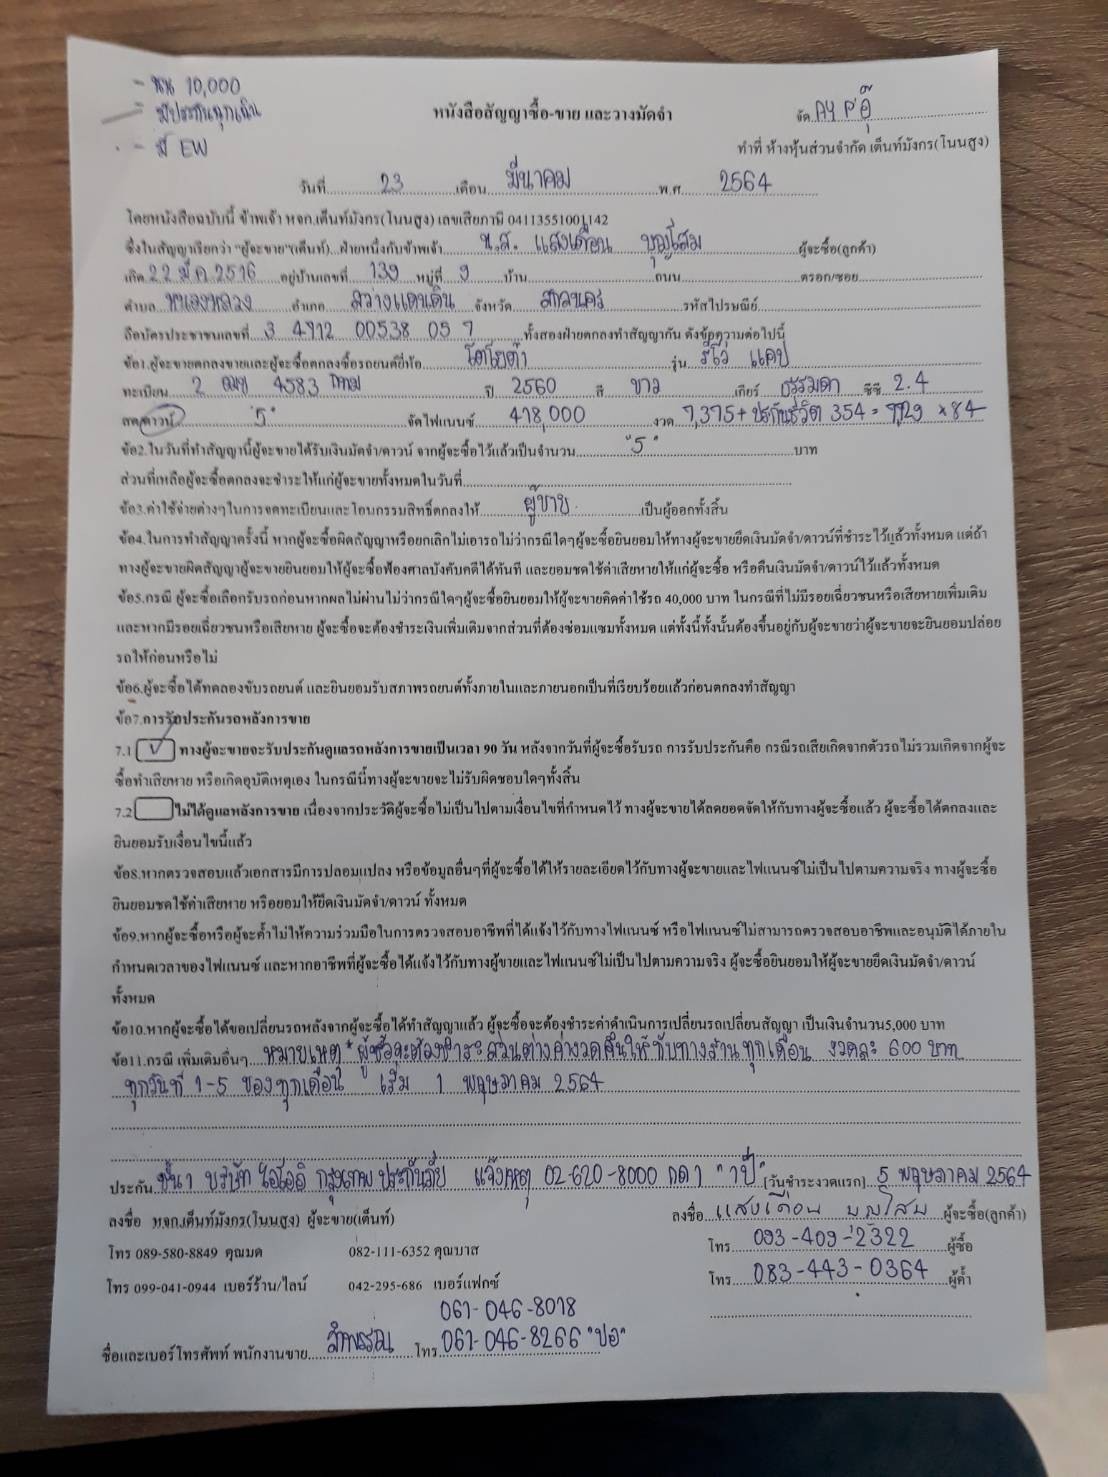 - พิเศษ 10,000
- มีประกันฉุกเฉิน
- มี EW
หนังสือสัญญาซื้อ-ขาย และวางมัดจำ
จัด AY P'อุ๊
ทำที่ ห้างหุ้นส่วนจำกัด เต็นท์มังกร(โนนสูง)
วันที่ 23 เดือน มีนาคม พ.ศ. 2564
โดยหนังสือฉบับนี้ ข้าพเจ้า หจก.เต็นท์มังกร(โนนสูง) เลขเสียภาษี 04113551001142
ซึ่งในสัญญาเรียกว่า "ผู้จะขาย"(เต็นท์)...ฝ่ายหนึ่งกับข้าพเจ้า น.ส. แสงเดือน บุญโสม ผู้จะซื้อ(ลูกค้า)
เกิด 22 มี.ค 2516 อยู่บ้านเลขที่ 139 หมู่ที่ 9 บ้าน ถนน ตรอก/ซอย
ตำบล หนองหลวง อำเภอ สว่างแดนดิน จังหวัด สกลนคร รหัสไปรษณีย์
ถือบัตรประชาชนเลขที่ 3 4712 00538 05 7 ทั้งสองฝ่ายตกลงทำสัญญากัน ดังข้อความต่อไปนี้
ข้อ1.ผู้จะขายตกลงขายและผู้จะซื้อตกลงซื้อรถยนต์ยี่ห้อ โตโยต้า รุ่น รีโว่ แคป
ทะเบียน 2 4583 กทม ปี 2560 สี ขาว เกียร์ ธรรมดา ซีซี 2.4
สด/ดาวน์ "5" จัดไฟแนนซ์ 418,000 งวด 7,375 + ประกันชีวิต 354 = 7729 × 84
ข้อ2.ในวันที่ทำสัญญานี้ผู้จะขายได้รับเงินมัดจำ/ดาวน์ จากผู้จะซื้อไว้แล้วเป็นจำนวน "5" บาท
ส่วนที่เหลือผู้จะซื้อตกลงจะชำระให้แก่ผู้จะขายทั้งหมดในวันที่
ข้อ3.ค่าใช้จ่ายต่างๆในการจดทะเบียนและโอนกรรมสิทธิ์ตกลงให้ ผู้ขาย เป็นผู้ออกทั้งสิ้น
ข้อ4.ในการทำสัญญาครั้งนี้ หากผู้จะซื้อผิดสัญญาหรือยกเลิกไม่เอารถไม่ว่ากรณีใดๆผู้จะซื้อยินยอมให้ทางผู้จะขายยึดเงินมัดจำ/ดาวน์ที่ชำระไว้แล้วทั้งหมด แต่ถ้า
ทางผู้จะขายผิดสัญญาผู้จะขายยินยอมให้ผู้จะซื้อฟ้องศาลบังคับคดีได้ทันที และยอมชดใช้ค่าเสียหายให้แก่ผู้จะซื้อ หรือคืนเงินมัดจำ/ดาวน์ไว้แล้วทั้งหมด
ข้อ5.กรณี ผู้จะซื้อเลือกรับรถก่อนหากผลไม่ผ่านไม่ว่ากรณีใดๆผู้จะซื้อยินยอมให้ผู้จะขายคิดค่าใช้รถ 40,000 บาท ในกรณีที่ไม่มีรอยเฉี่ยวชนหรือเสียหายเพิ่มเติม
และหากมีรอยเฉี่ยวชนหรือเสียหาย ผู้จะซื้อจะต้องชำระเงินเพิ่มเติมจากส่วนที่ต้องซ่อมแซมทั้งหมด แต่ทั้งนี้ทั้งนั้นต้องขึ้นอยู่กับผู้จะขายว่าผู้จะขายจะยินยอมปล่อย
รถให้ก่อนหรือไม่
ข้อ6.ผู้จะซื้อได้ทดลองขับรถยนต์ และยินยอมรับสภาพรถยนต์ทั้งภายในและภายนอกเป็นที่เรียบร้อยแล้วก่อนตกลงทำสัญญา
ข้อ7.การรับประกันรถหลังการขาย
7.1 ✓ ทางผู้จะขายจะรับประกันดูแลรถหลังการขายเป็นเวลา 90 วัน หลังจากวันที่ผู้จะซื้อรับรถ การรับประกันคือ กรณีรถเสียเกิดจากตัวรถไม่รวมเกิดจากผู้จะ
ซื้อทำเสียหาย หรือเกิดอุบัติเหตุเอง ในกรณีนี้ทางผู้จะขายจะไม่รับผิดชอบใดๆทั้งสิ้น
7.2 ไม่ได้ดูแลหลังการขาย เนื่องจากประวัติผู้จะซื้อไม่เป็นไปตามเงื่อนไขที่กำหนดไว้ ทางผู้จะขายได้ลดยอดจัดให้กับทางผู้จะซื้อแล้ว ผู้จะซื้อได้ตกลงและ
ยินยอมรับเงื่อนไขนี้แล้ว
ข้อ8.หากตรวจสอบแล้วเอกสารมีการปลอมแปลง หรือข้อมูลอื่นๆที่ผู้จะซื้อได้ให้รายละเอียดไว้กับทางผู้จะขายและไฟแนนซ์ไม่เป็นไปตามความจริง ทางผู้จะซื้อ
ยินยอมชดใช้ค่าเสียหาย หรือยอมให้ยึดเงินมัดจำ/ดาวน์ ทั้งหมด
ข้อ9.หากผู้จะซื้อหรือผู้จะค้ำไม่ให้ความร่วมมือในการตรวจสอบอาชีพที่ได้แจ้งไว้กับทางไฟแนนซ์ หรือไฟแนนซ์ไม่สามารถตรวจสอบอาชีพและอนุมัติได้ภายใน
กำหนดเวลาของไฟแนนซ์ และหากอาชีพที่ผู้จะซื้อได้แจ้งไว้กับทางผู้ขายและไฟแนนซ์ไม่เป็นไปตามความจริง ผู้จะซื้อยินยอมให้ผู้จะขายยึดเงินมัดจำ/ดาวน์
ทั้งหมด
ข้อ10.หากผู้จะซื้อได้ขอเปลี่ยนรถหลังจากผู้จะซื้อได้ทำสัญญาแล้ว ผู้จะซื้อจะต้องชำระค่าดำเนินการเปลี่ยนรถเปลี่ยนสัญญา เป็นเงินจำนวน5,000 บาท
ข้อ11.กรณี เพิ่มเติมอื่นๆ หมายเหตุ * ผู้ซื้อจะต้องชำระส่วนต่างค่างวดคืนให้กับทางร้านทุกเดือน งวดละ 600 บาท
ทุกวันที่ 1-5 ของทุกเดือน เริ่ม 1 พฤษภาคม 2564
ประกัน ชั้น 1 บริษัท ไอโออิ กรุงเทพ ประกันภัย แจ้งเหตุ 02-620-8000 กด 1 "1ปี" (วันชำระงวดแรก) 5 พฤษภาคม 2564
ลงชื่อ หจก.เต็นท์มังกร(โนนสูง) ผู้จะขาย(เต็นท์)
ลงชื่อ แสงเดือน บุญโสม ผู้จะซื้อ(ลูกค้า)
โทร 089-580-8849 คุณมด 082-111-6352 คุณบาส
โทร 093-409-2322 ผู้ซื้อ
โทร 099-041-0944 เบอร์ร้าน/ไลน์ 042-295-686 เบอร์แฟกซ์
โทร 083-443-0364 ผู้ค้ำ
061-046-8018
ชื่อและเบอร์โทรศัพท์ พนักงานขาย ลำพรรณ โทร 061-046-8266 "ปอ"